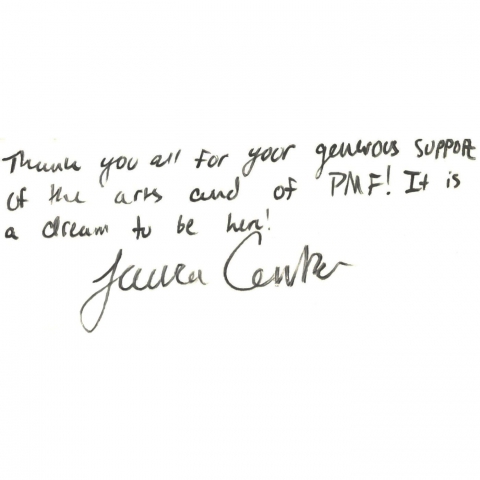 Thank you all for your generous support
of the arts and of PMF! It is
a dream to be here!
Laura